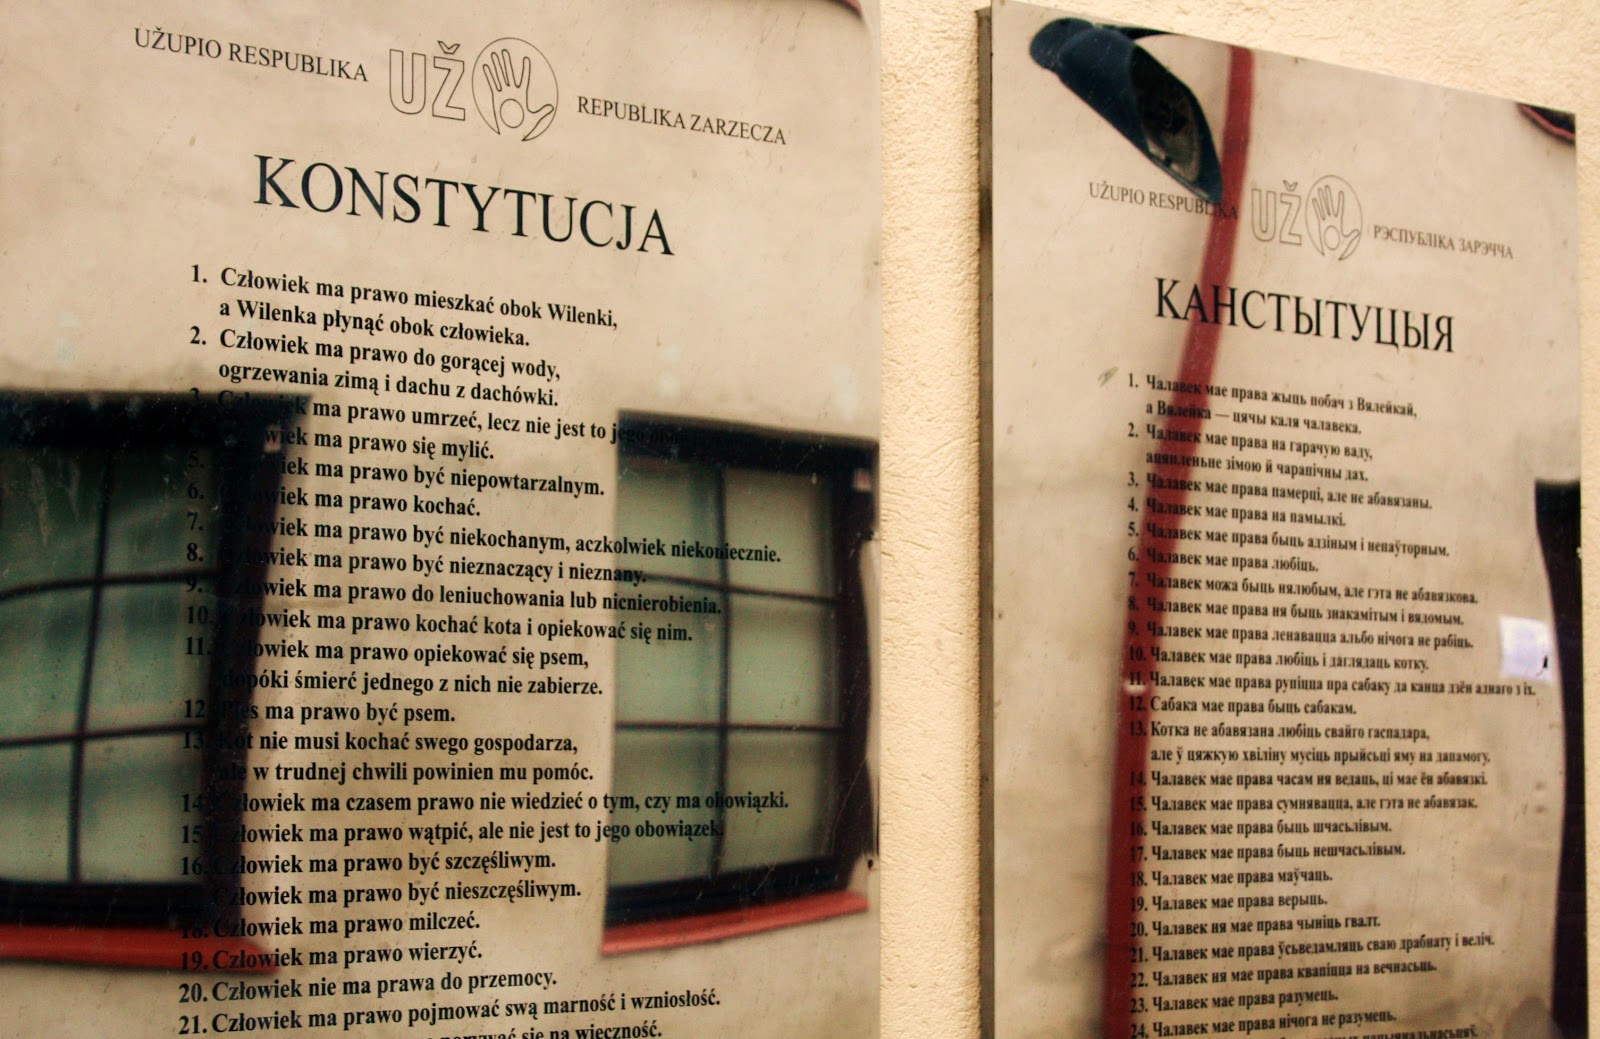 UŽUPIO RESPUBLIKA
UŽ
REPUBLIKA ZARZECZA
KONSTYTUCJA
1. Człowiek ma prawo mieszkać obok Wilenki,
a Wilenka płynąć obok człowieka.
2. Człowiek ma prawo do gorącej wody,
ogrzewania zimą i dachu z dachówki.
3. Człowiek ma prawo umrzeć, lecz nie jest to jego
Człowiek ma prawo się mylić.
5. Człowiek ma prawo być niepowtarzalnym.
6. Człowiek ma prawo kochać.
7. Człowiek ma prawo być niekochanym, aczkolwiek niekoniecznie.
8. Człowiek ma prawo być nieznaczący i nieznany.
9. Człowiek ma prawo do leniuchowania lub nicnierobienia.
10. Człowiek ma prawo kochać kota i opiekować się nim.
11. Człowiek ma prawo opiekować się psem,
dopóki śmierć jednego z nich nie zabierze.
12. Pies ma prawo być psem.
13. Kot nie musi kochać swego gospodarza,
ale w trudnej chwili powinien mu pomóc.
14. Człowiek ma czasem prawo nie wiedzieć o tym, czy ma obowiązki.
15. Człowiek ma prawo wątpić, ale nie jest to jego obowiązek.
16. Człowiek ma prawo być szczęśliwym.
Człowiek ma prawo być nieszczęśliwym.
18. Człowiek ma prawo milczeć.
19. Człowiek ma prawo wierzyć.
20. Człowiek nie ma prawa do przemocy.
21. Człowiek ma prawo pojmować swą marność i wzniosłość.
się na wieczność.
UŽUPIO RESPUBLIKA
UŽ
РЭСПУБЛІКА ЗАРЭЧЧА
КАНСТЫТУЦЫЯ
1. Чалавек мае права жыць побач з Вялейкай,
а Вялейка — цячы каля чалавека.
2. Чалавек мае права на гарачую ваду,
ацяпленьне зімою й чарапічны дах.
3. Чалавек мае права памерці, але не абавязаны.
4. Чалавек мае права на памылкі.
5. Чалавек мае права быць адзіным і непаўторным.
6. Чалавек мае права любіць.
7. Чалавек можа быць нялюбым, але гэта не абавязкова.
8. Чалавек мае права ня быць знакамітым і вядомым.
9. Чалавек мае права ленавацца альбо нічога не рабіць.
10. Чалавек мае права любіць і даглядаць котку.
11. Чалавек мае права рупіцца пра сабаку да канца дзён аднаго з іх.
12. Сабака мае права быць сабакам.
13. Котка не абавязана любіць свайго гаспадара,
але ў цяжкую хвіліну мусіць прыйсьці яму на дапамогу.
14. Чалавек мае права часам ня ведаць, ці мае ён абавязкі.
15. Чалавек мае права сумнявацца, але гэта не абавязак.
16. Чалавек мае права быць шчасьлівым.
17. Чалавек мае права быць нешчасьлівым.
18. Чалавек мае права маўчаць.
19. Чалавек мае права верыць.
20. Чалавек ня мае права чыніць гвалт.
21. Чалавек мае права ўсьведамляць сваю драбнату і веліч.
22. Чалавек ня мае права квапіцца на вечнасьць.
23. Чалавек мае права разумець.
24. Чалавек мае права нічога не разумець.